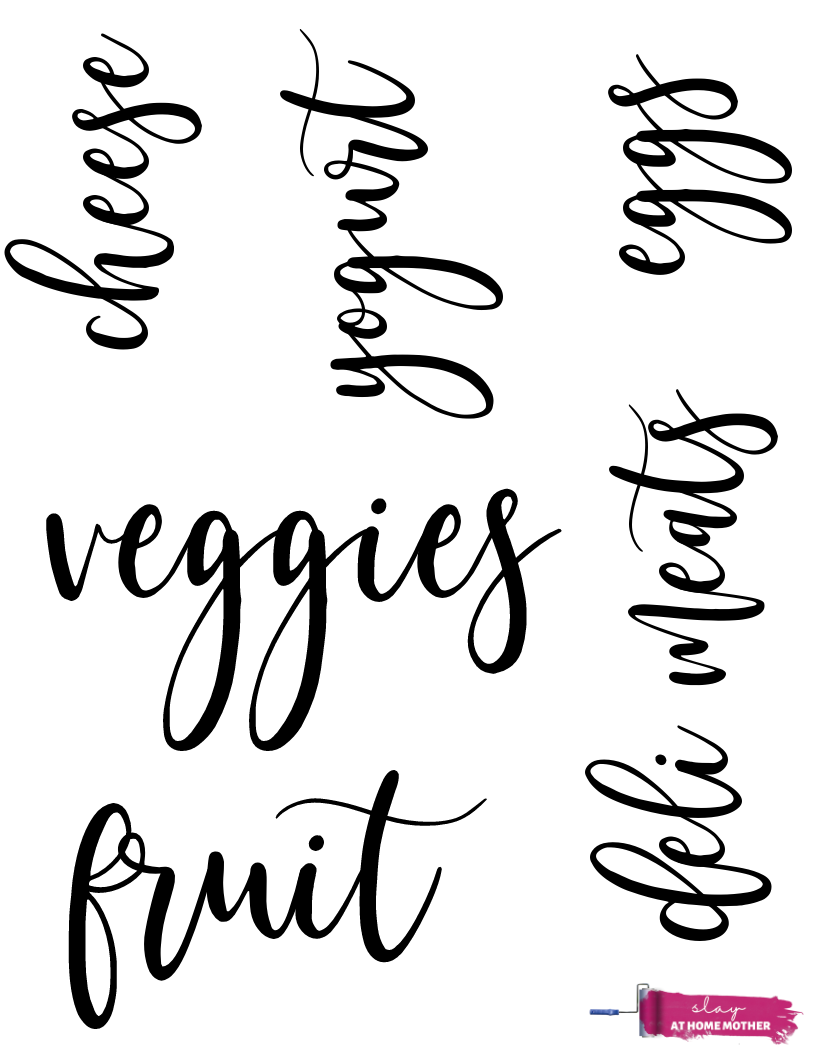 cheese
yogurt
eggs
veggies
deli meats
fruit
slay
AT HOME MOTHER